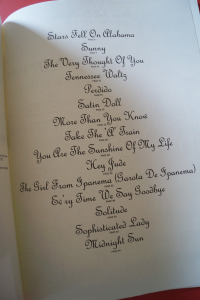 Stars Fell On Alabama
Sunny
The Very Thought Of You
Tennessee Waltz
Perdido
Satin Doll
More Than You Know
Take The 'A' Train
You Are The Sunshine Of My Life
Hey Jude
The Girl From Ipanema (Garota De Ipanema)
Ev'ry Time We Say Goodbye
Solitude
Sophisticated Lady
Midnight Sun